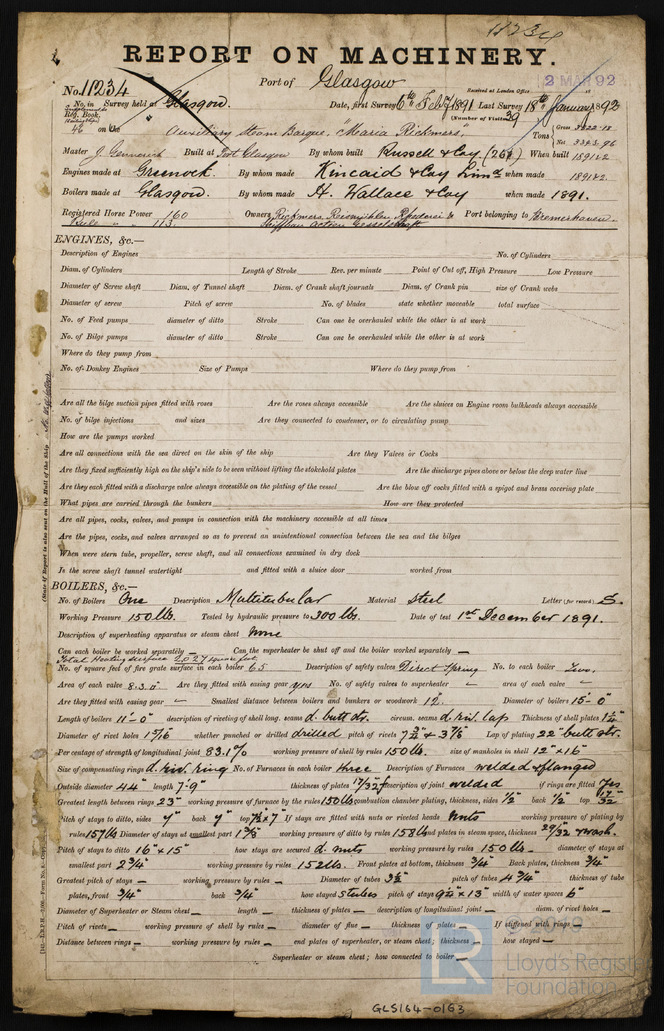 11234
REPORT ON MACHINERY.
Port of Glasgow
Received at London Office 2 MAR 92
No. 11234
No. in Survey held at Glasgow. Date, first Survey 6th Feby 1891 Last Survey 18th January 1892
Reg. Book. (Number of Visits 39
46 on the Auxiliary Steam Barque, "Maria Rickmers," Tons Gross Net
Master J. Built at Port Glasgow By whom built Russell & Coy. When built 1891&2
Engines made at Greenock By whom made Kincaid & Coy Limd when made 1891&2
Boilers made at Glasgow. By whom made H. Wallace & Coy when made 1891.
Registered Horse Power 160 Owners Rickmers Port belonging to Bremerhaven.
Rule " " 113.
ENGINES, &c.—
Description of Engines No. of Cylinders
Diam. of Cylinders Length of Stroke Rev. per minute Point of Cut off, High Pressure Low Pressure
Diameter of Screw shaft Diam. of Tunnel shaft Diam. of Crank shaft journals Diam. of Crank pin size of Crank webs
Diameter of screw Pitch of screw No. of blades state whether moveable total surface
No. of Feed pumps diameter of ditto Stroke Can one be overhauled while the other is at work
No. of Bilge pumps diameter of ditto Stroke Can one be overhauled while the other is at work
Where do they pump from
No. of Donkey Engines Size of Pumps Where do they pump from
Are all the bilge suction pipes fitted with roses Are the roses always accessible Are the sluices on Engine room bulkheads always accessible
No. of bilge injections and sizes Are they connected to condenser, or to circulating pump
How are the pumps worked
Are all connections with the sea direct on the skin of the ship Are they Valves or Cocks
Are they fixed sufficiently high on the ship's side to be seen without lifting the stokehold plates Are the discharge pipes above or below the deep water line
Are they each fitted with a discharge valve always accessible on the plating of the vessel Are the blow off cocks fitted with a spigot and brass covering plate
What pipes are carried through the bunkers How are they protected
Are all pipes, cocks, valves, and pumps in connection with the machinery accessible at all times
Are the pipes, cocks, and valves arranged so as to prevent an unintentional connection between the sea and the bilges
When were stern tube, propeller, screw shaft, and all connections examined in dry dock
Is the screw shaft tunnel watertight and fitted with a sluice door worked from
(State if Report is also sent on the Hull of the Ship
BOILERS, &c.—
No. of Boilers One Description Multitubular Material Steel Letter (for record) S.
Working Pressure 150 lbs. Tested by hydraulic pressure to 300 lbs. Date of test 1st December 1891.
Description of superheating apparatus or steam chest None
Can each boiler be worked separately — Can the superheater be shut off and the boiler worked separately —
Total Heating surface 2027 square feet
No. of square feet of fire grate surface in each boiler 65 Description of safety valves Direct Spring No. to each boiler Two.
Area of each valve 8.30" Are they fitted with easing gear yes No. of safety valves to superheater — area of each valve —
Are they fitted with easing gear — Smallest distance between boilers and bunkers or woodwork 12" Diameter of boilers 15'-0"
Length of boilers 11'-0" description of riveting of shell long. seams d. butt sts. circum. seams d. riv. lap Thickness of shell plates
Diameter of rivet holes whether punched or drilled drilled pitch of rivets Lap of plating 22" butt str.
Per centage of strength of longitudinal joint 83.1% working pressure of shell by rules 150 lbs. size of manholes in shell 12" × 16"
Size of compensating rings d. riv. ring No. of Furnaces in each boiler three Description of Furnaces welded & flanged
Outside diameter 44" length 7'-9" thickness of plates 17/32" description of joint welded if rings are fitted Yes
Greatest length between rings 23" working pressure of furnace by the rules 150 lbs combustion chamber plating, thickness, sides 1/2" back 1/2" top 17/32"
Pitch of stays to ditto, sides back top If stays are fitted with nuts or riveted heads Nuts working pressure of plating by
rules 157 lbs Diameter of stays at smallest part 1 3/8" working pressure of ditto by rules 158 lbs end plates in steam space, thickness 29/32 & wash.
Pitch of stays to ditto 16" × 15" how stays are secured d. nuts working pressure by rules 150 lbs— diameter of stays at
smallest part 2 3/4" working pressure by rules 152 lbs. Front plates at bottom, thickness 3/4" Back plates, thickness 3/4"
Greatest pitch of stays — working pressure by rules — Diameter of tubes 3 1/2" pitch of tubes 4 3/4" thickness of tube
plates, front 3/4" back 3/4" how stayed S tubes pitch of stays 9 1/2" × 13" width of water spaces 6"
Diameter of Superheater or Steam chest — length — thickness of plates — description of longitudinal joint — diam. of rivet holes —
Pitch of rivets — working pressure of shell by rules — diameter of flue — thickness of plates — If stiffened with rings —
Distance between rings — working pressure by rules — end plates of superheater, or steam chest; thickness — how stayed —
Superheater or steam chest; how connected to boiler —
LR
Lloyd's Register
Foundation
GLS164-0163